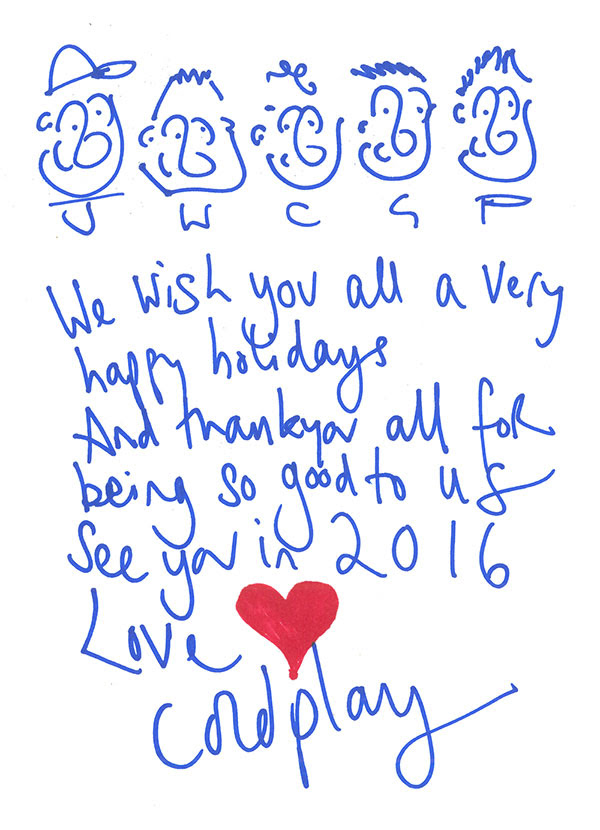 J W C G P
We wish you all a very
happy holidays
And thankyou all for
being so good to us
See you in 2016
Love
coldplay